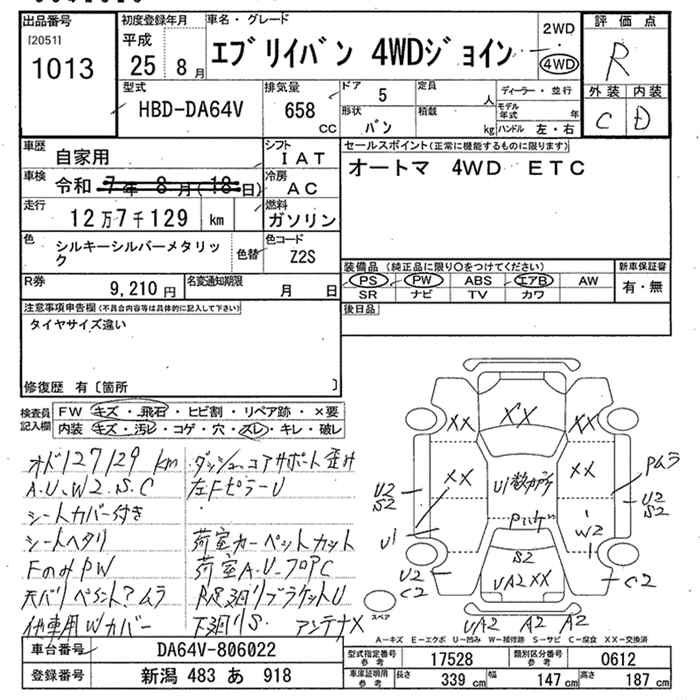 出品番号
[2051]
1013
初度登録年月
平成
25 8月
車名・グレード
エブリイバン 4WDジョイン
2WD
4WD
評価点
R
外装 内装
C D
型式
HBD-DA64V
排気量
658 CC
ドア 5
形状 バン
定員 人
積載 kg
ディーラー・並行
モデル年式 年
ハンドル 左・右
車歴 自家用
シフト IAT
車検 令和 7年 8月(18日)
冷房 AC
走行 12万7千129 km
燃料 ガソリン
色 シルキーシルバーメタリック
色替
色コード Z2S
R券 9,210円
名変通知期限 月 日
セールスポイント(正常に機能するものに限ります)
オートマ 4WD ETC
装備品(純正品に限り○をつけてください)
新車保証書
PS PW ABS エアB AW
SR ナビ TV カワ
有・無
後日品
注意事項申告欄(不具合内容等は具体的に記入して下さい)
タイヤサイズ違い
修復歴 有〔箇所 〕
検査員記入欄
FW キズ・飛石・ヒビ割・リペア跡・×要
内装 キズ・汚レ・コゲ・穴・スレ・キレ・破レ
オド127129km
A.U、W2.S.C
シートカバー付き
シートヘタリ
FのみPW
天バリペイント?ムラ
他車用Wカバー
ダッシュ、コアサポート歪け
左FピラーU
荷室カーペットカット
荷室A.U、フロアC
R足廻りブラケットU
下廻りS. アンテナX
XX XX XX
XX XX
U1
U2
S2
U1
U2
C2
Pムラ
U2
S2
W2
C2
S2
UA2XX
UA2 A2 A2
スペア
A-キズ E-エクボ U-凹み W-補修跡 S-サビ C-腐食 XX-交換済
車台番号 DA64V-806022
登録番号 新潟 483 あ 918
型式指定番号 参考 17528
類別区分番号 参考 0612
車庫証明用 参考
長さ 339 cm
幅 147 cm
高さ 187 cm